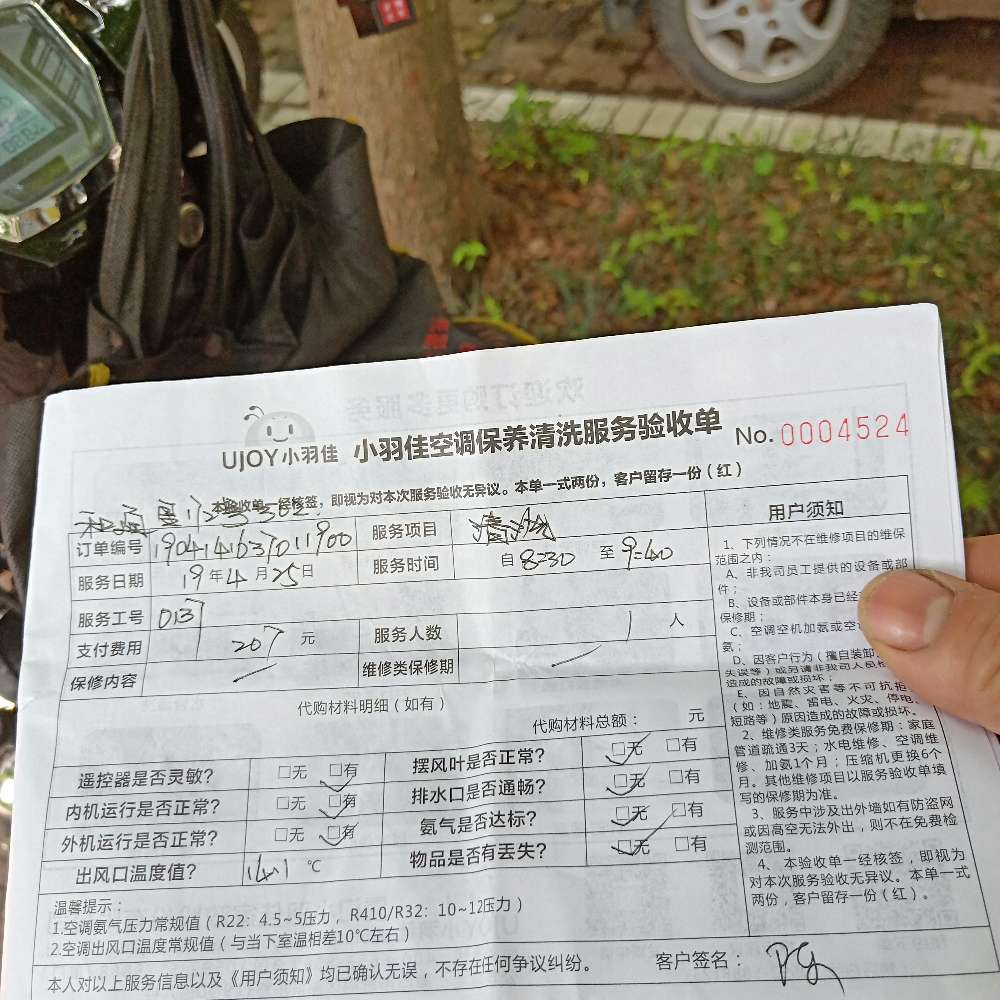 UJOY小羽佳 小羽佳空调保养清洗服务验收单 No. 0004524
本验收单一经核签，即视为对本次服务验收无异议。本单一式两份，客户留存一份（红）
订单编号 1904141637011900 服务项目 清洗
服务日期 19年4月25日 服务时间 自8:30 至9:40
服务工号 013
支付费用 207元 服务人数 1人
保修内容 维修类保修期
代购材料明细（如有）
代购材料总额： 元
遥控器是否灵敏？ □无 □有 摆风叶是否正常？ □无 □有
内机运行是否正常？ □无 □有 排水口是否通畅？ □无 □有
外机运行是否正常？ □无 □有 氨气是否达标？ □无 □有
出风口温度值？ 14.1 ℃ 物品是否有丢失？ □无 □有
温馨提示：
1.空调氨气压力常规值（R22：4.5~5压力，R410/R32：10~12压力）
2.空调出风口温度常规值（与当下室温相差10℃左右）
本人对以上服务信息以及《用户须知》均已确认无误，不存在任何争议纠纷。 客户签名：
用户须知
1、下列情况不在维修项目的维保
范围之内：
A、非我司员工提供的设备或部
件；
B、设备或部件本身已经
保修期；
C、空调空机加氨或空
氨；
D、因客户行为（擅自装卸
失误等）或另请非我司人员
造成的故障或损坏；
E、因自然灾害等不可抗拒
（如：地震、雷电、火灾、停电、
短路等）原因造成的故障或损坏。
2、维修类服务免费保修期：家庭
管道疏通3天；水电维修、空调维
修、加氨1个月；压缩机更换6个
月。其他维修项目以服务验收单填
写的保修期为准。
3、服务中涉及出外墙如有防盗网
或因高空无法外出，则不在免费检
测范围。
4、本验收单一经核签，即视为
对本次服务验收无异议。本单一式
两份，客户留存一份（红）。